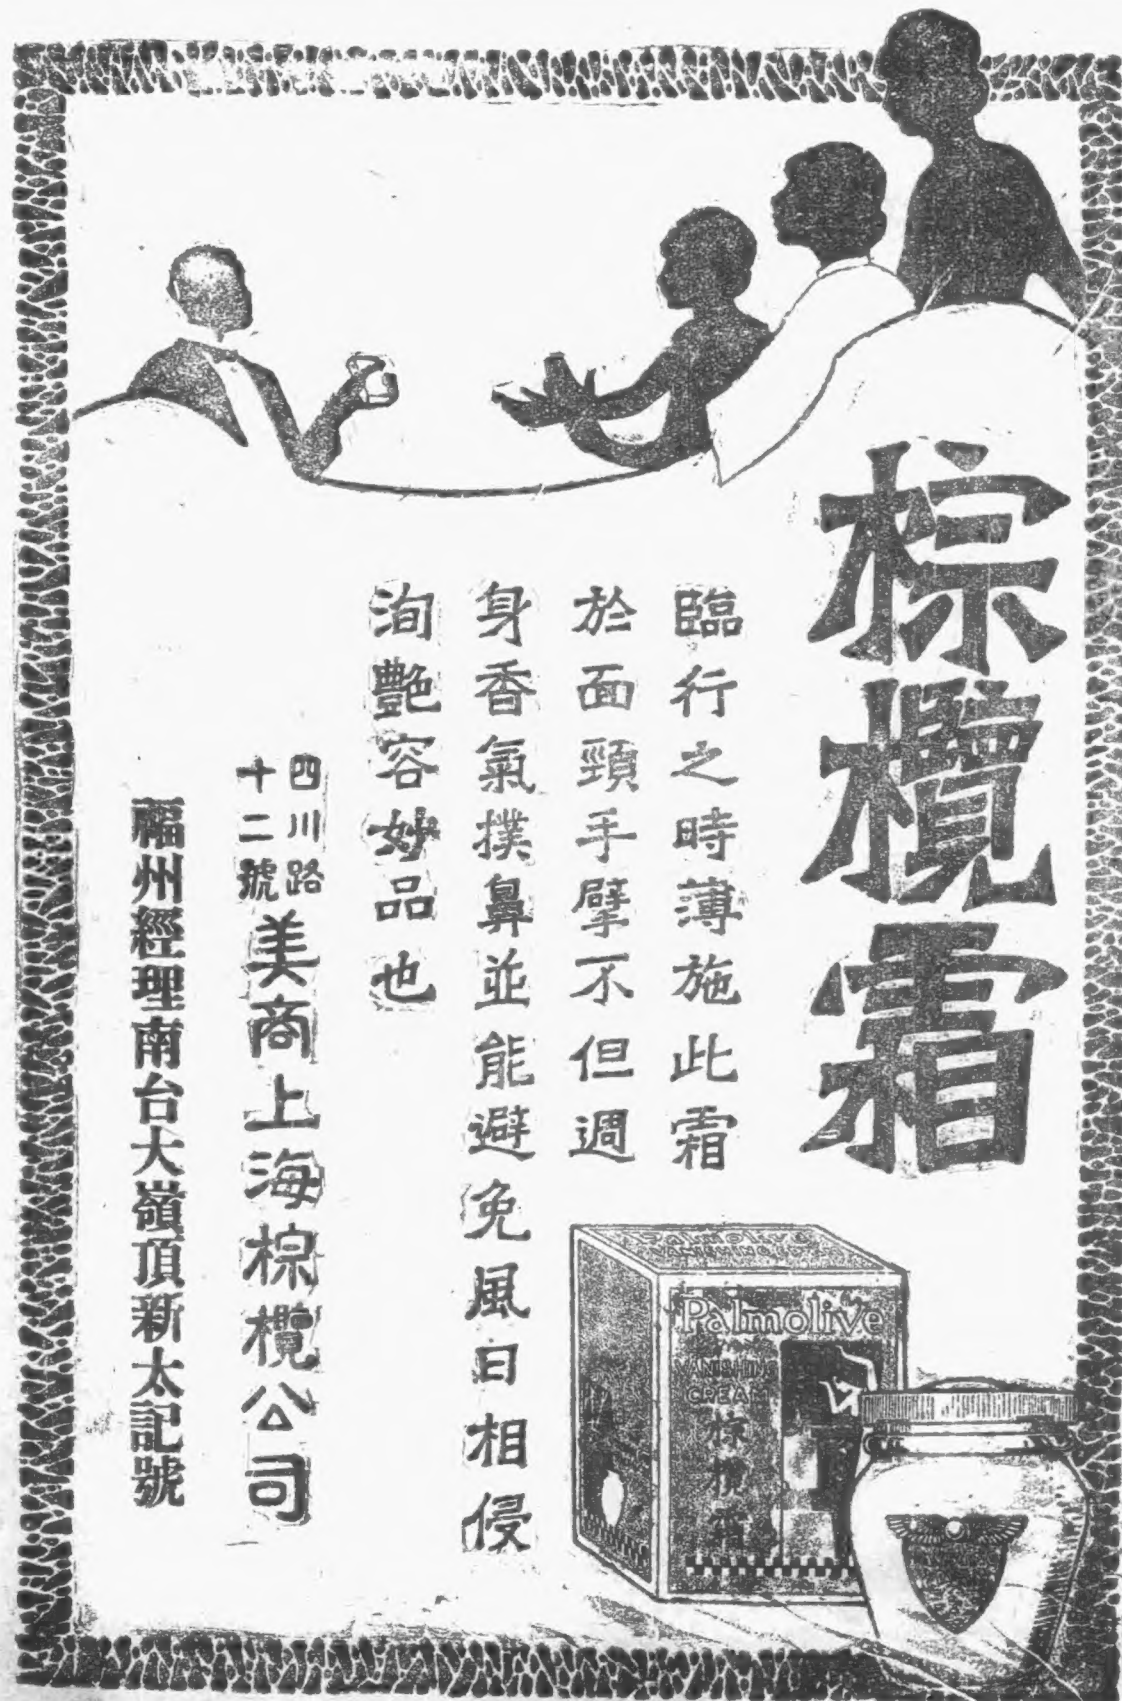 棕欖霜
臨行之時薄施此霜
於面頸手擘不但週
身香氣撲鼻並能避免風日相侵
洵艷容妙品也
四川路
十二號
美商上海棕欖公司
福州經理南台大嶺頂新太記號
Palmolive
VANISHING CREAM
Palmolive
VANISHING
CREAM
棕欖霜